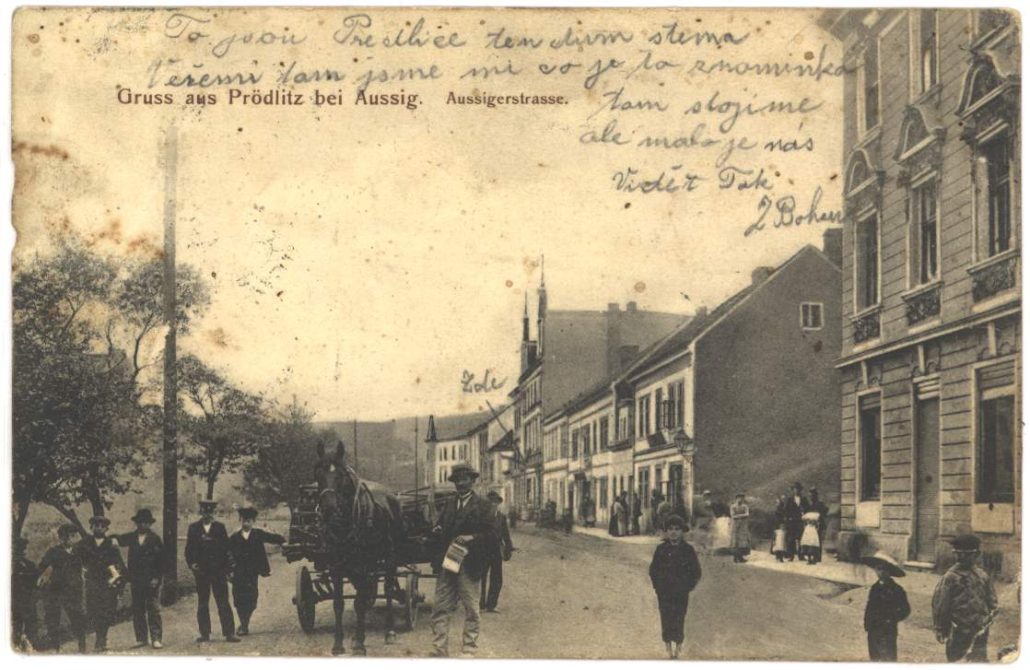 To jsou Predlice ten dum stema
Veřemi tam jsme mi co je to znaminka
Gruss aus Prödlitz bei Aussig. Aussigerstrasse.
tam stojime
ale malo je nás
Vidět Tak
Zde